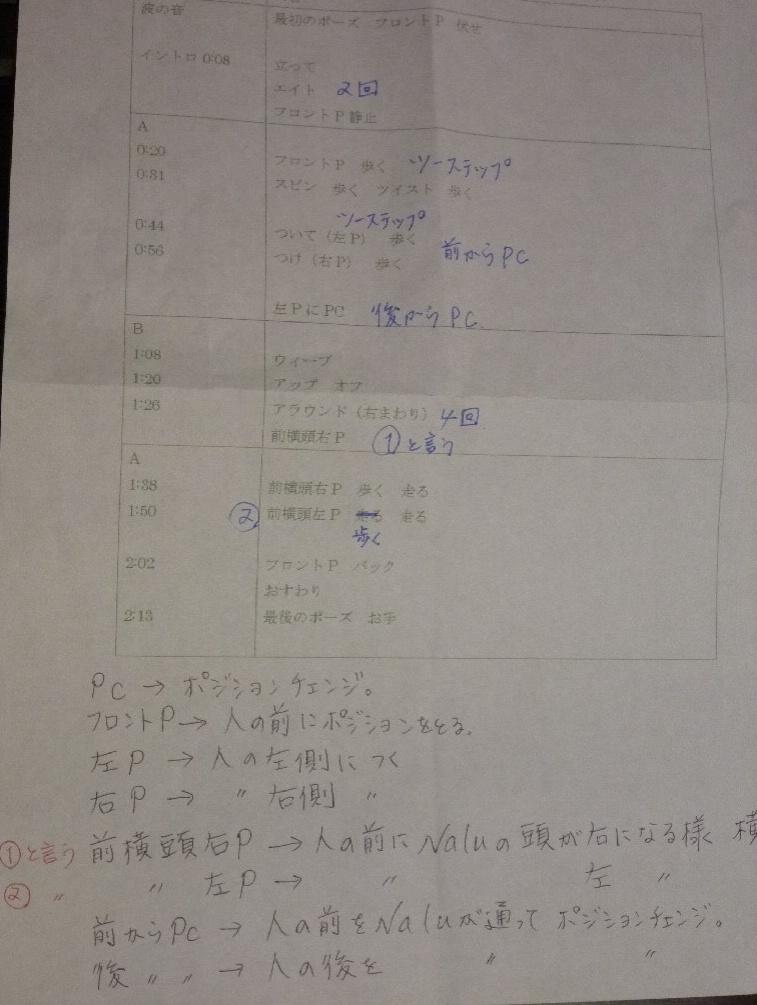 波の音 最初のポーズ フロントP 伏せ
イントロ 0:08 立って
エイト 2回
フロントP 静止
A
0:20 フロントP 歩く ツーステップ
0:31 スピン 歩く ツイスト 歩く
ツーステップ
0:44 ついて（左P） 歩く 前からPC
0:56 つけ（右P） 歩く
左PにPC 後からPC
B
1:08 ウィーブ
1:20 アップ オフ
1:26 アラウンド（右まわり） 4回
前横頭右P ①と言う
A
1:38 前横頭右P 歩く 走る
1:50 ② 前横頭左P 走る 走る
歩く
2:02 フロントP バック
おすわり
2:13 最後のポーズ お手
PC → ポジションチェンジ。
フロントP → 人の前にポジションをとる。
左P → 人の左側につく
右P → 〃 右側 〃
①と言う 前横頭右P → 人の前にNaluの頭が右になる様 横
② 〃 〃 左P → 〃 左 〃
前からPC → 人の前をNaluが通って ポジションチェンジ。
後 〃 〃 → 人の後を 〃 〃